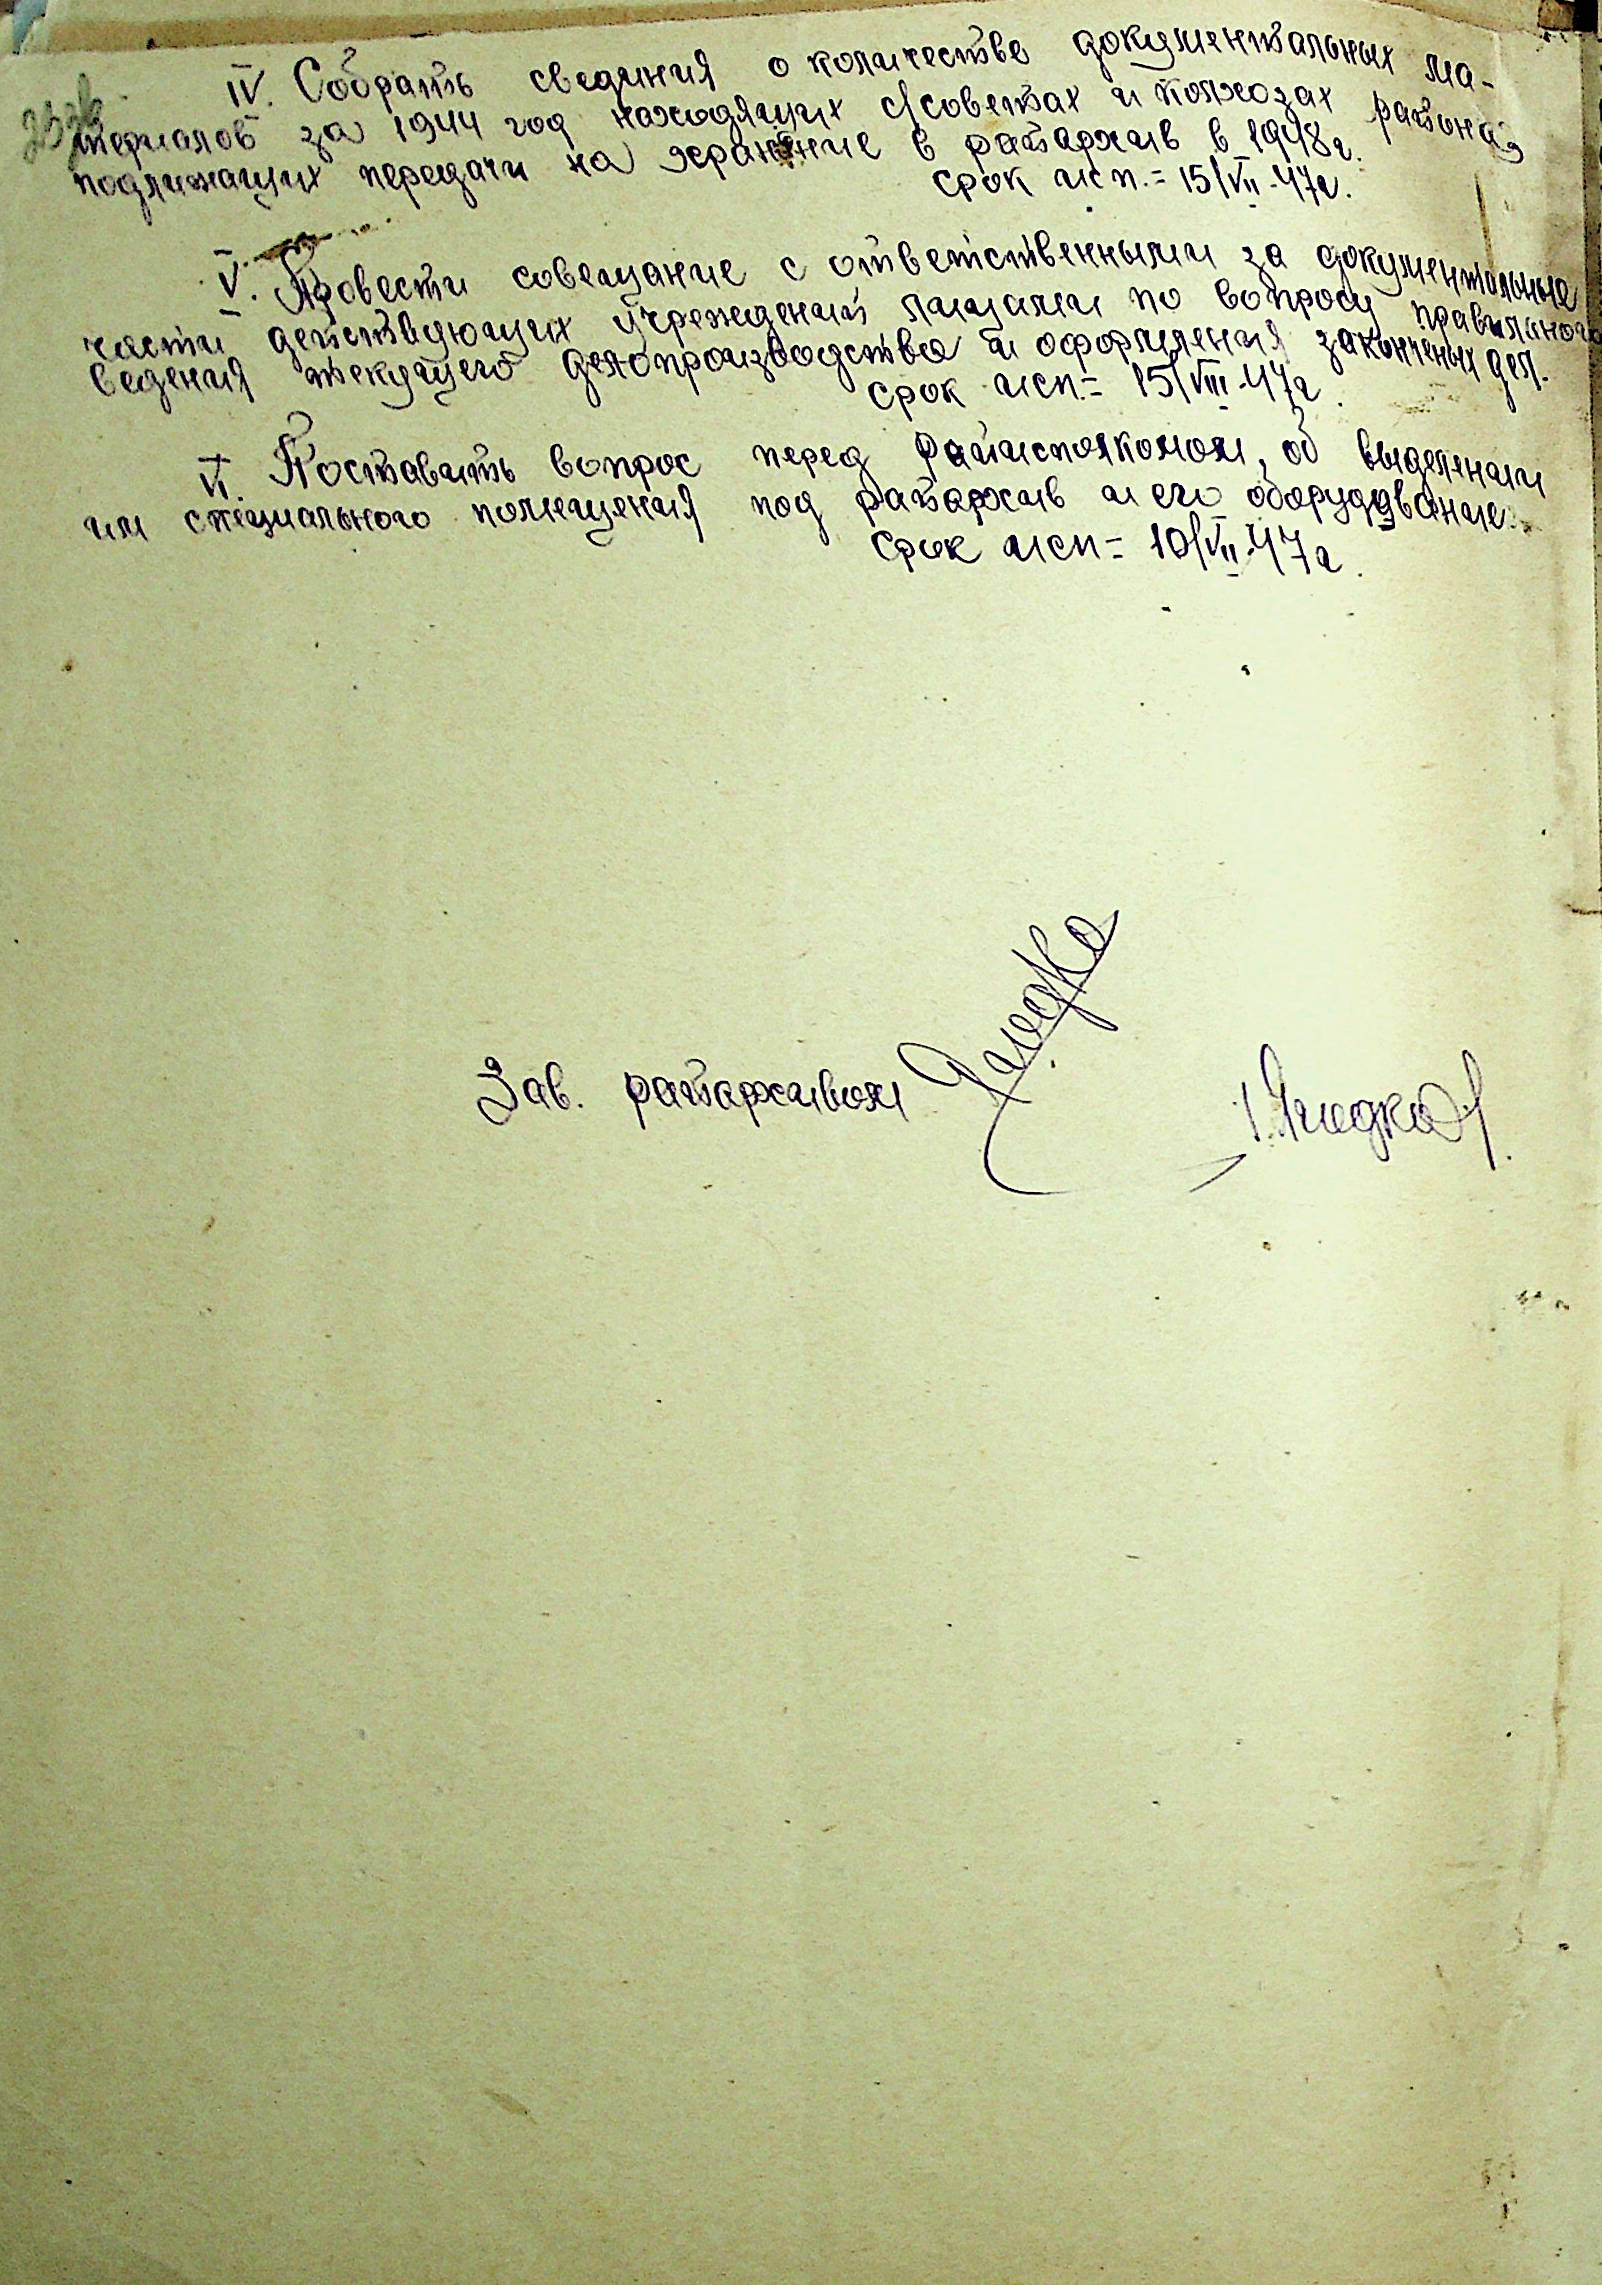 IV. Собрать сведения о количестве документальных ма-
териалов за 1944 год находящих с/советах и колхозах района,
подлижащих передачи на хранение в райархив в 1948г.
Срок исп. = 15/VII-47г.
V. Провести совещание с ответственными за документальные
части действующих учреждений лицами по вопросу правильного
ведения текущего делопроизводства и оформления законченых дел.
Срок исп. = 15/VIII-47г.
VI. Поставить вопрос перед райисполкомом, об выделении
им специального помещения под райархив и его оборудование.
Срок исп = 10/VII-47г.
Зав. райархивом